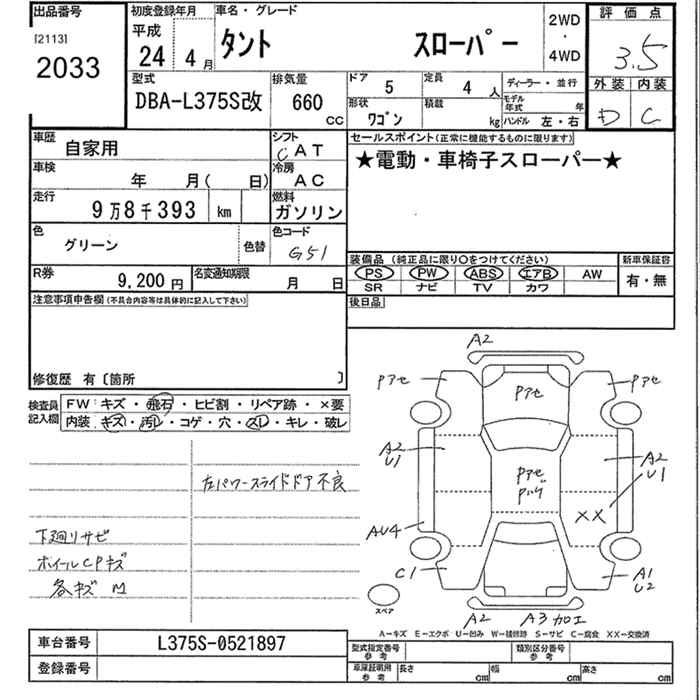 出品番号
[2113]
2033
初度登録年月
平成
24 4月
車名・グレード
タント スローパー
2WD
・
4WD
評価点
3.5
外装 内装
D C
型式
DBA-L375S改
排気量
660
CC
ドア 5 定員 4 人
形状 ワゴン 積載 kg
ディーラー・並行
モデル年式 年
ハンドル 左・右
車歴 自家用
シフト
CAT
車検 年 月( 日)
冷房
AC
走行
9万8千393 km
燃料
ガソリン
色
グリーン
色替
色コード
G51
R券 9,200円
名変通知期限 月 日
セールスポイント(正常に機能するものに限ります)
★電動・車椅子スローパー★
装備品 (純正品に限り〇をつけてください)
PS PW ABS エアB AW
SR ナビ TV カワ
新車保証書
有・無
後日品
注意事項申告欄(不具合内容等は具体的に記入して下さい)
修復歴 有〔箇所 〕
検査員
記入欄
FW:キズ・飛石・ヒビ割・リペア跡・×要
内装:キズ・汚レ・コゲ・穴・スレ・キレ・破レ
左パワースライドドア不良
下廻りサビ
ホイールCPキズ
各キズ M
A2
Pアセ
Pアセ
Pアセ
A2
U1
A2
U1
Pアセ
Pハゲ
XX
AU4
C1
A1
U2
スペア
A2
A3加エ
A-キズ E-エクボ U-凹み W-補修跡 S-サビ C-腐食 XX-交換済
車台番号 L375S-0521897
登録番号
型式指定番号
参考
類別区分番号
参考
車庫証明用
参考
長さ cm 幅 cm 高さ cm